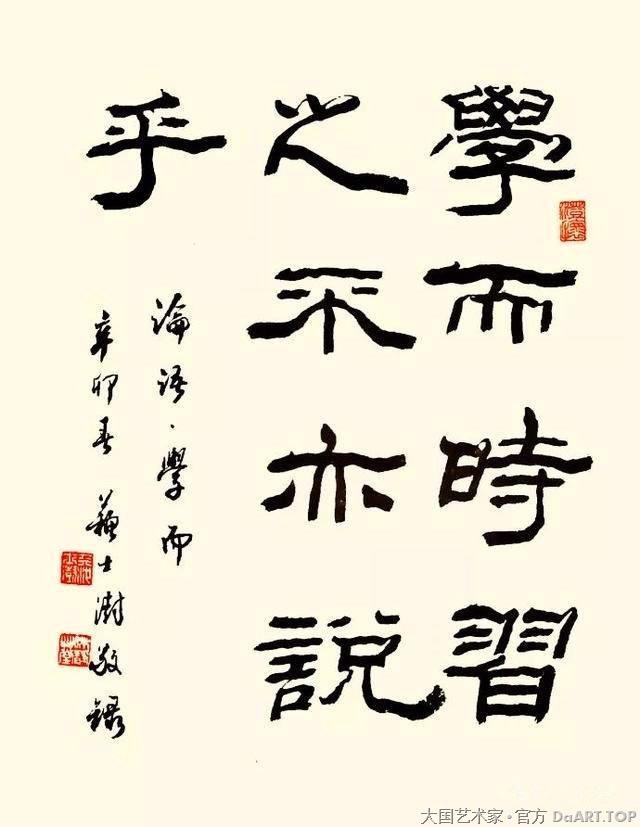 學而時習
之不亦說
乎
論語·學而
辛卯春 蘇士澍敬錄
大国艺术家·官方 DaART.TOP